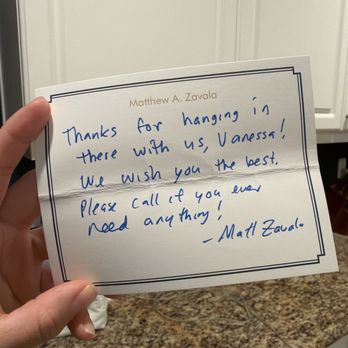 Matthew A. Zavala
Thanks for hanging in
there with us, Vanessa!
We wish you the best.
Please call if you ever
need anything!
- Matt Zavala